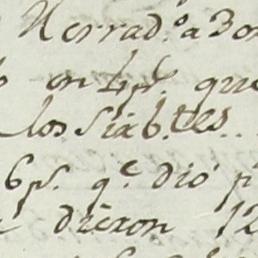 Herrad.º a Bon
en 4 p.s que
los Siab.tes
6 p.s q.e dió p
dieron 12